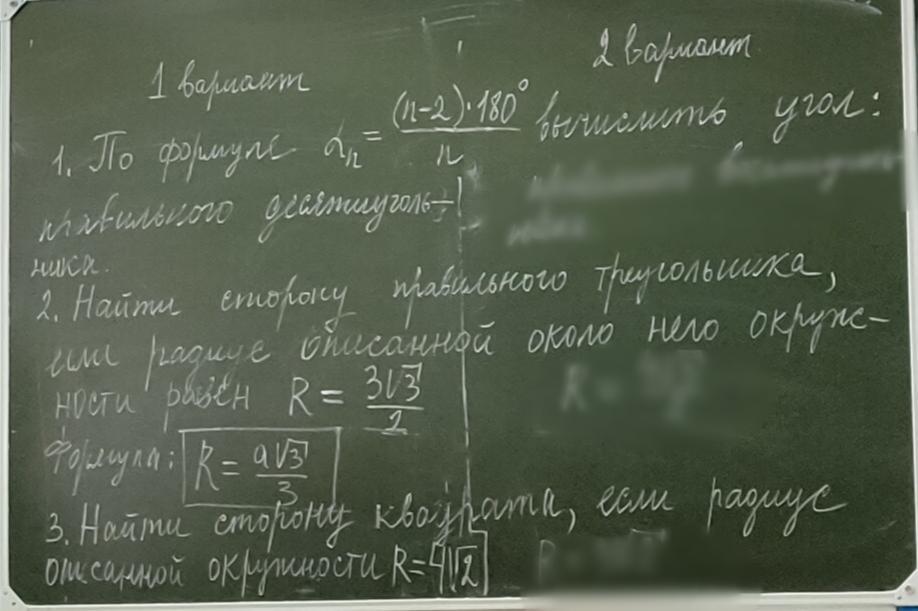 1 вариант
2 вариант
1. По формуле αₙ = (n-2)·180° / n вычислить угол:
правильного десятиуголь-
ника.
2. Найти сторону правильного треугольника,
если радиус описанной около него окруж-
ности равен R = 3√3 / 2
Формула: R = a√3 / 3
3. Найти сторону квадрата, если радиус
описанной окружности R=4√2